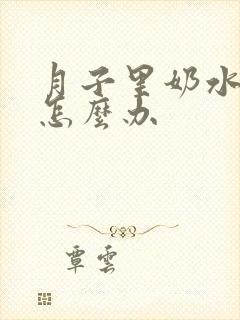 月子里奶水
怎麼办
覃雲